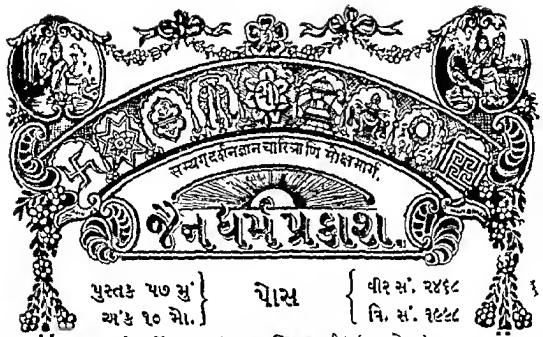 सम्यग्दर्शनज्ञानचारित्राणि मोक्षमार्गः
જૈન ધર્મ પ્રકાશ.
પુસ્તક ૫૭ મું
અંક ૧૦ મો.
પોસ
વીર સં. ૨૪૬૮
વિ. સં. ૧૯૯૮